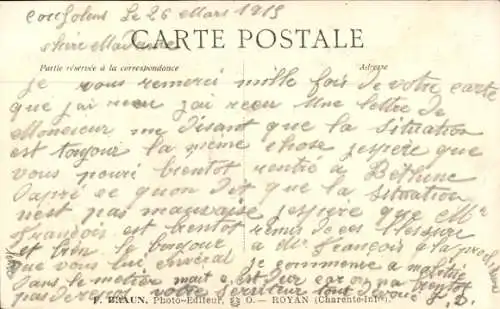 Confolens Le 26 Mars 1915
chère Madame
CARTE POSTALE
Partie réservée à la correspondance
Adresse
Je vous remerci mille fois de votre carte
que j'ai recu j'ai recu une lettre de
Monsieur me disant que la situation
est toujour la même chose j'espere que
vous pouré bientot rentré a Béthune
Dapré ce quon dit que la situation
n'est pas mauvaise j'espère que Mr
François est bientot remis de ces blessure
et bien le bonjour a Mr François a la prochaine
que vous lui
je commence a m'abitué
Dans le metier mait c'est dur car on na bientot
pas de repos votre serviteur tout devoué J. D.
F. BRAUN, Photo-Editeur, O. — ROYAN (Charente-Infre).